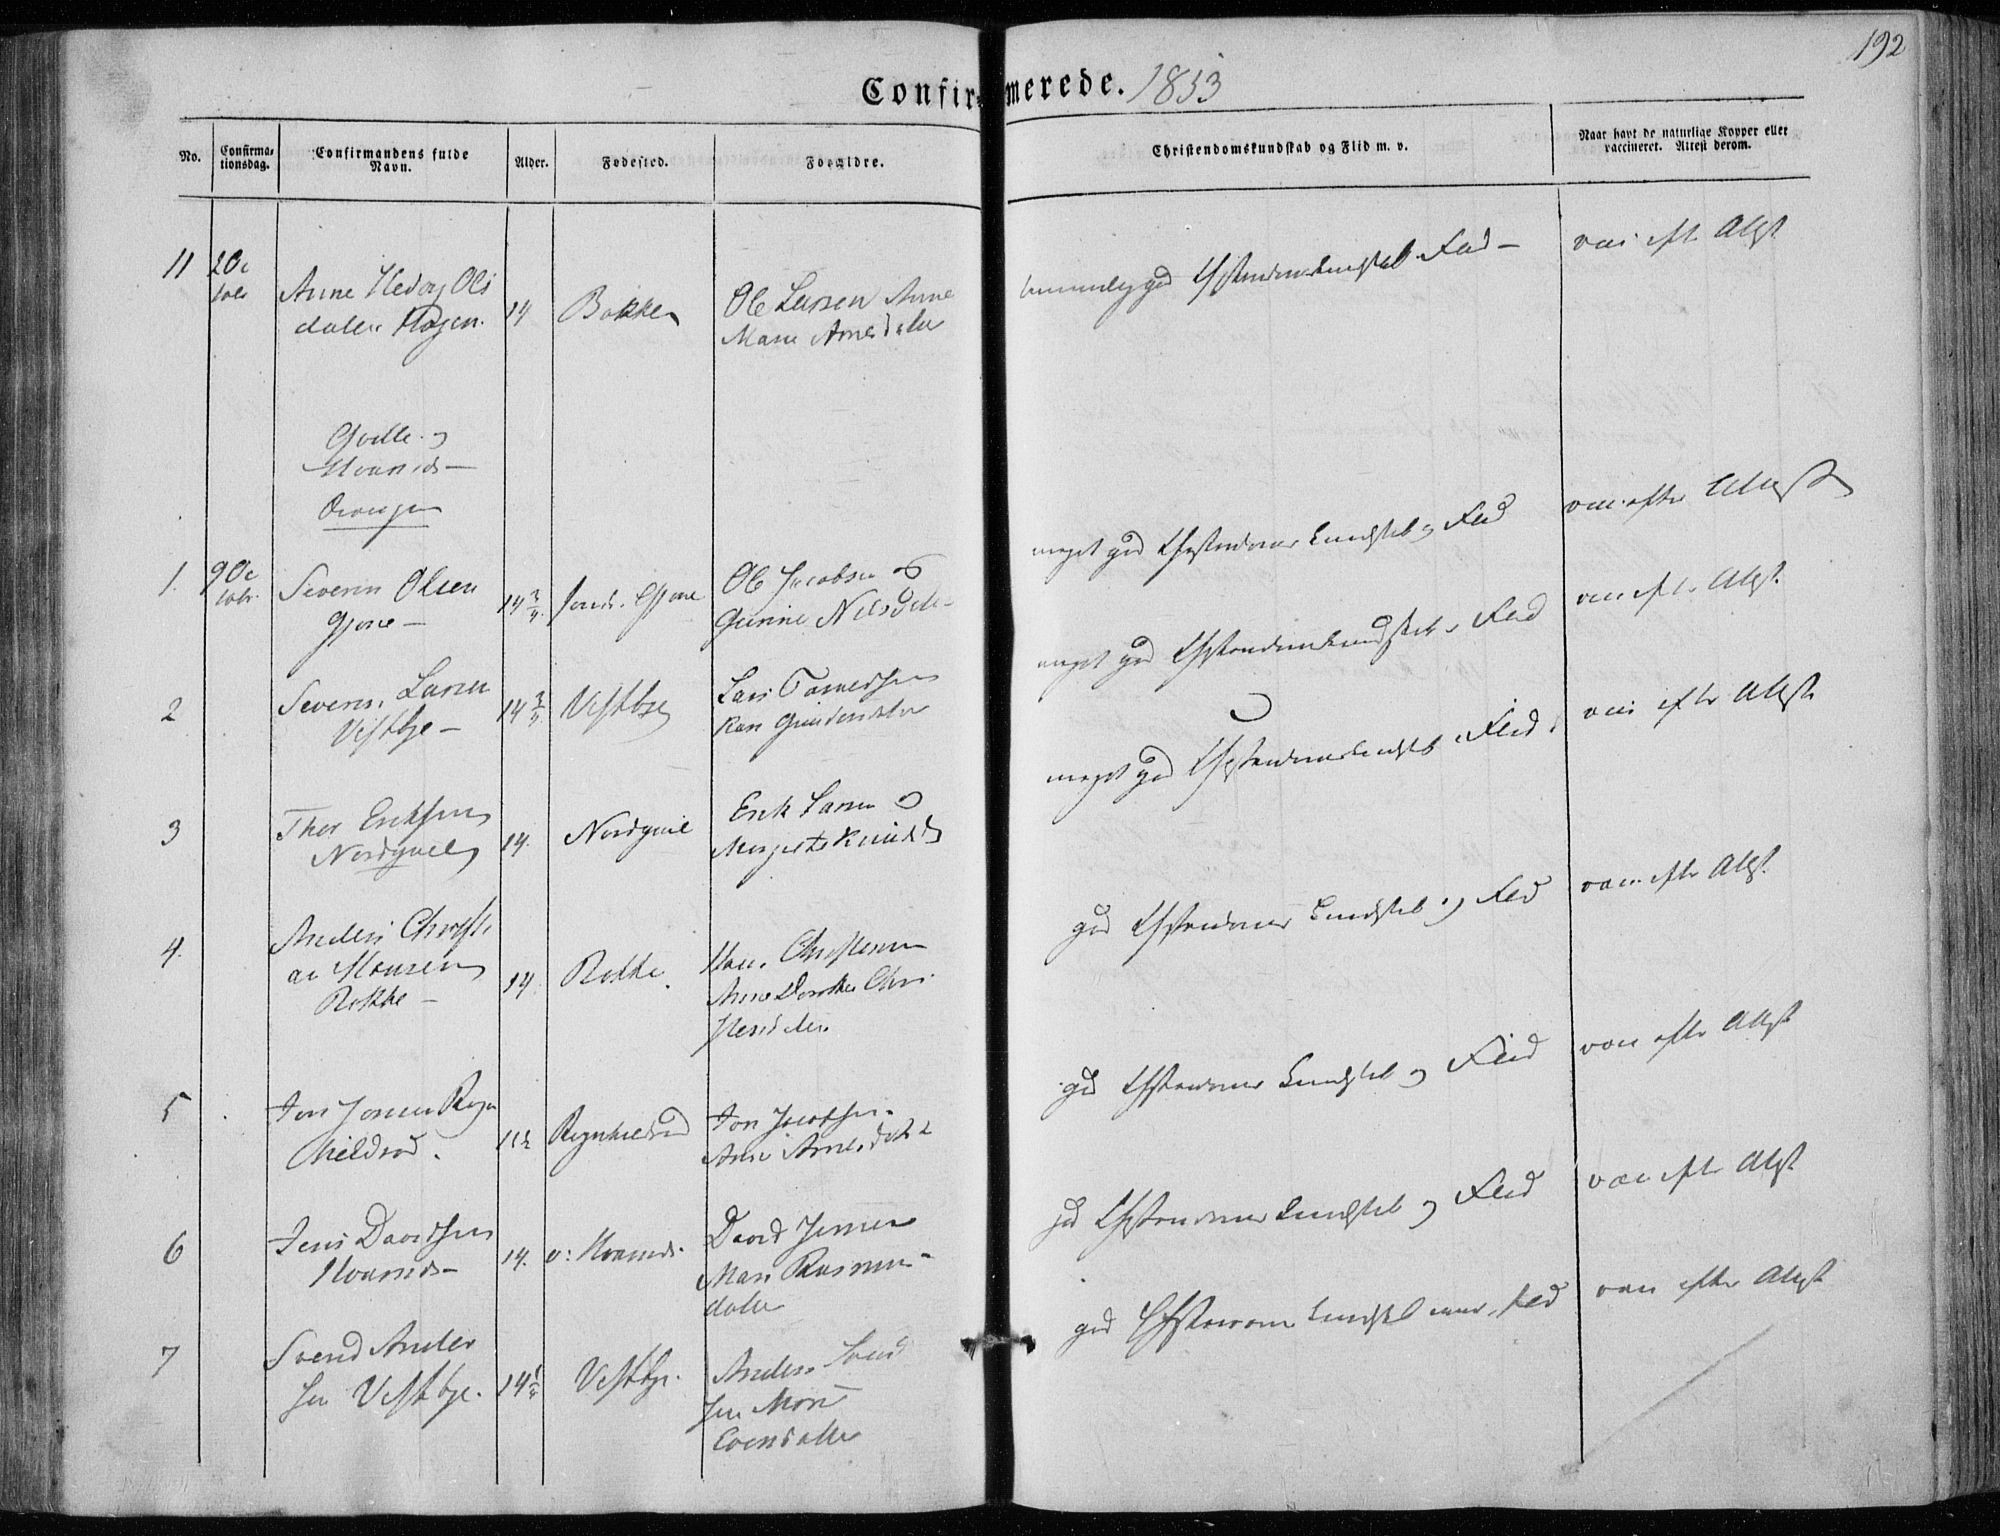 192
Confirmerede. 1853
No.
Confirma-
tionsdag.
Confirmandens fulde
Navn.
Alder.
Fødested.
Forældre.
Christendomskundskab og Flid m. v.
Naar havt de naturlige Kopper eller
vaccineret. Attest derom.
11
2 Oc
tobr
Anne Hedvig Ols
datter Hagen.
14
Bakken
Ole Larsen Anne
Marie Arnesdatter
temmelig god Christendomskundskab Flid -
vac eft Attest
og
Hvarnæs
1.
9 Oc
tobr.
Severin Olsen
Gjone -
14 3/4
Gjone
Ole Jacobsen og
Gunine Nilsdtr -
meget god Christendoms kundskab og Flid
vac. efter Attest
2
Severin Larsen
Vestbye -
14 3/4
Vestbye
Lars
Kari Gundersdtr
meget god Christendomskundskab og Flid
vac eft Attest
3
Thor Eriksen
Nordqvelle
14.
Nordqvel
Erik Larsen og
Margrete Knudsd
meget god Christendomskundskab Flid
vac efter Attest
4.
Anders Christi
an Hansen
Rokke -
14
Rokke
Hans Christensen
Anne Dorthea Chri
stensdatter
god Christendoms kundskab og Flid
vac. eft Attest
5
Jon Jonsen Rygn
hildrød.
Rygnhildrød
Jon Jacobsen
Anne Arnesdatter
god Christendoms kundskab og Flid
vac efter Attest
6
Jens Davidsen
Hvarnæs -
14.
v: Hvarnæs.
David Jensen
Mari Rasmus-
datter
god Christendoms kundskab og Flid
vac eft Attest
7
Svend Anders
sen Vestbye.
14 1/4
Vestbye.
Anders Svend
sen
Evensdatter
god Christendoms kundskab Flid
vac efter Attest